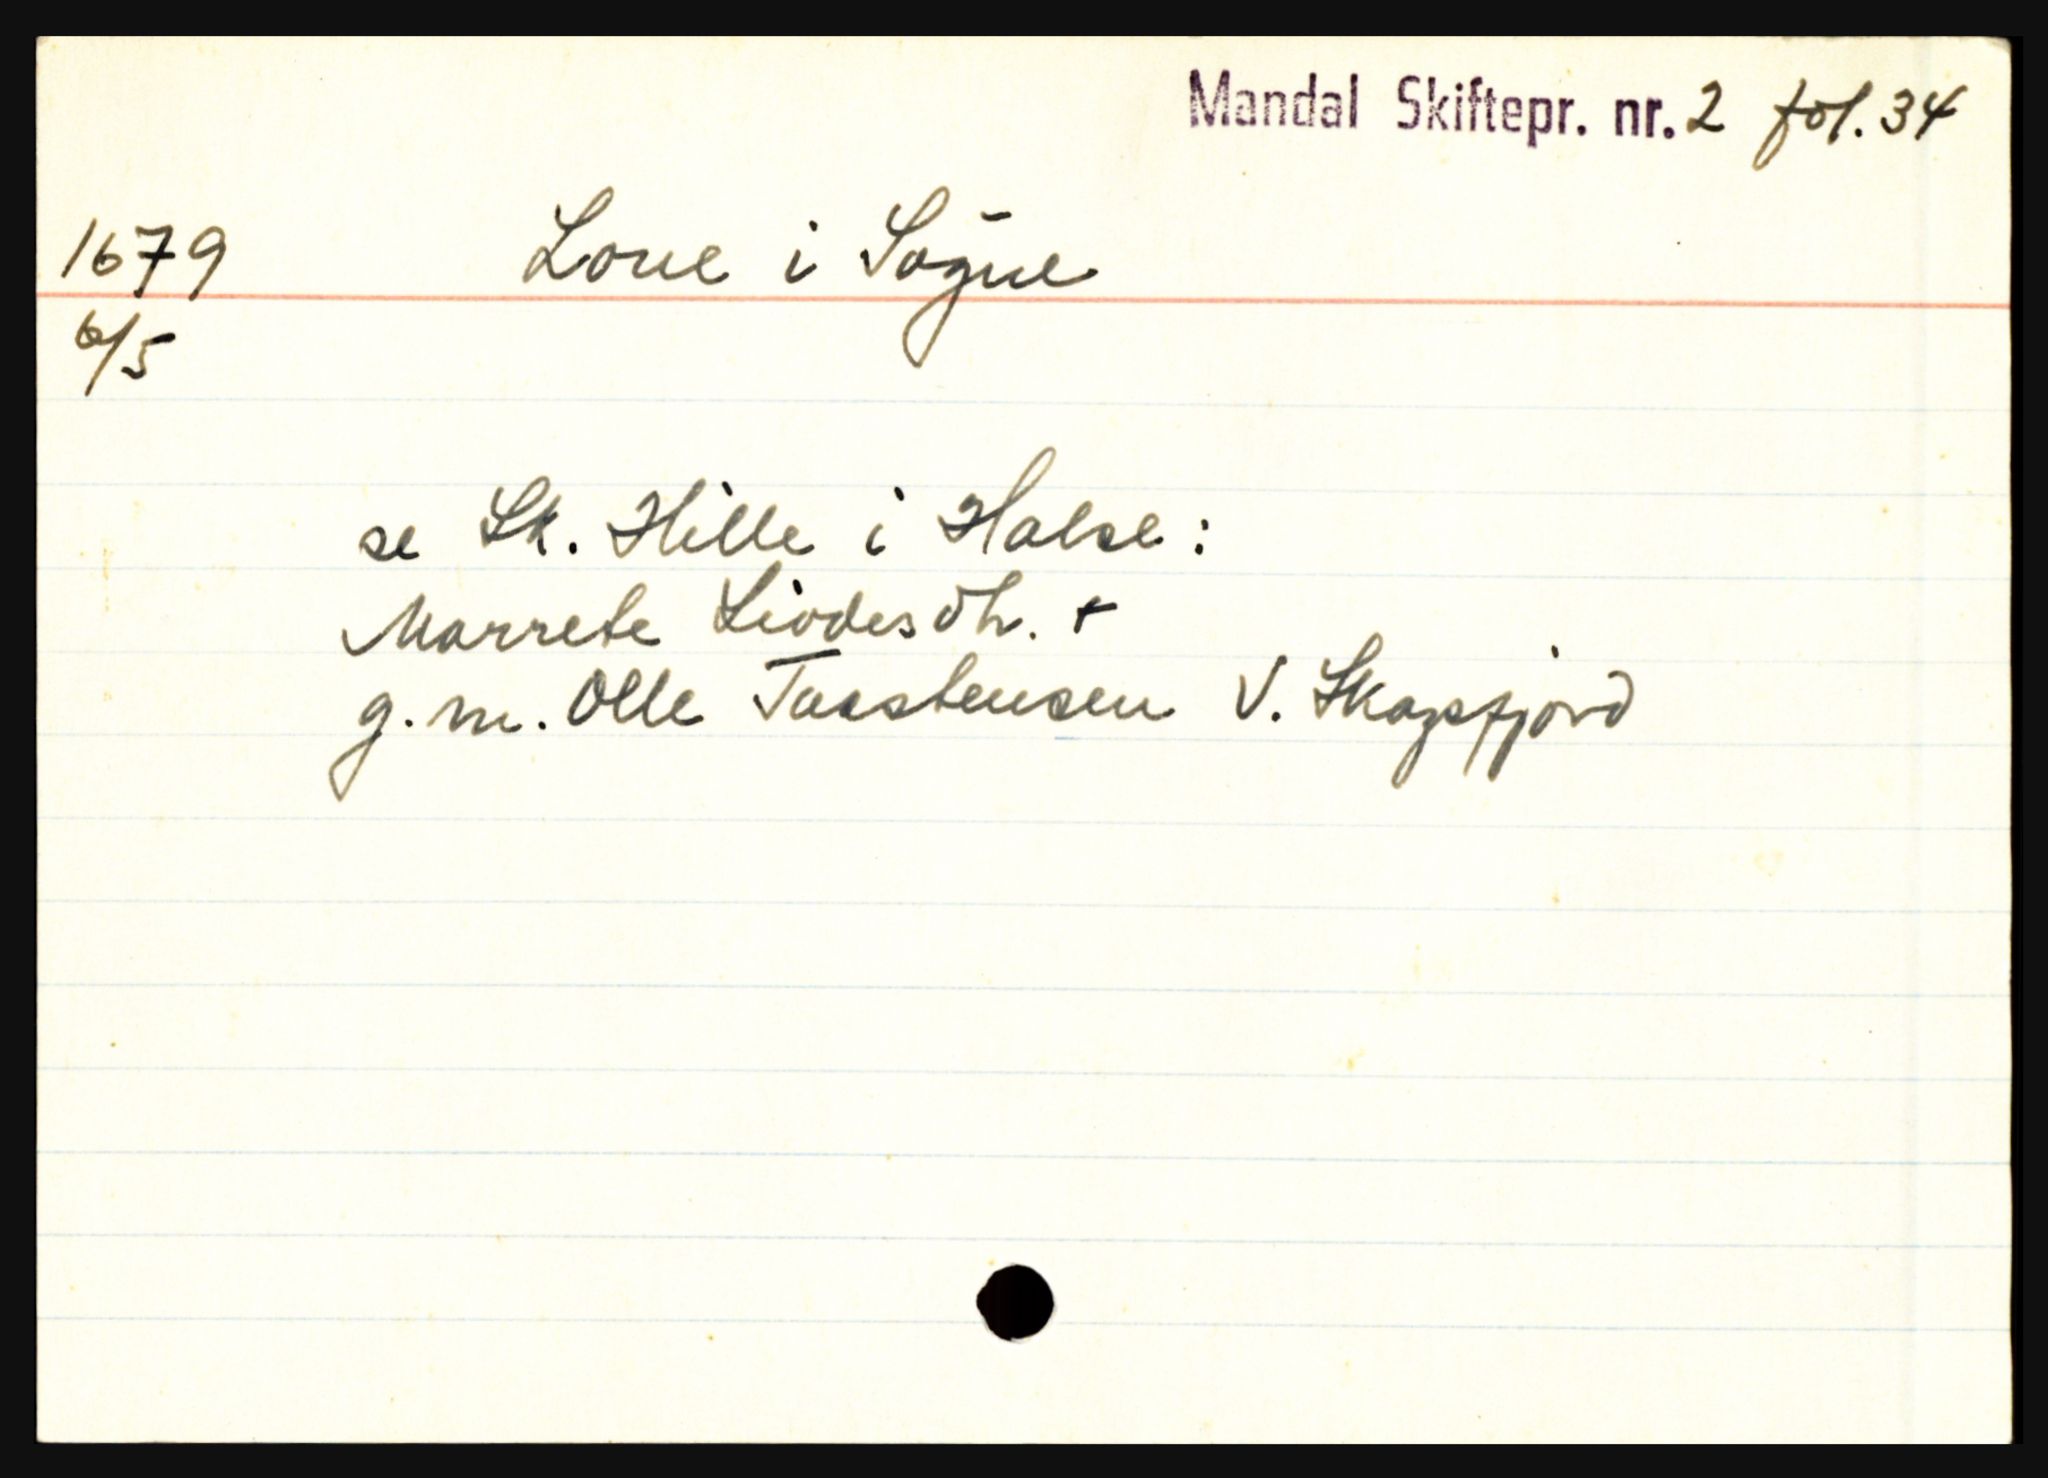 Mandal Skiftepr. nr. 2 fol. 34
1679 Loue i Søgne
6/5
se Sk. Hille i Halse:
Marrete Livdesdtr. +
g.m. Olle Taastensen V. Skogsfjord